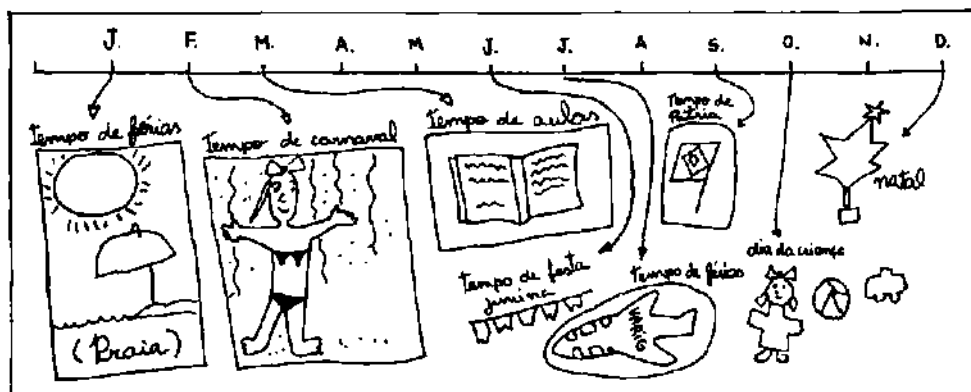 J. F. M. A. M J. J. A S. O. N. D.
tempo de férias
tempo de carnaval
tempo de aulas
tempo de
Pátria
natal
tempo de festa
junina
tempo de férias
dia da criança
VARIG
(Praia)